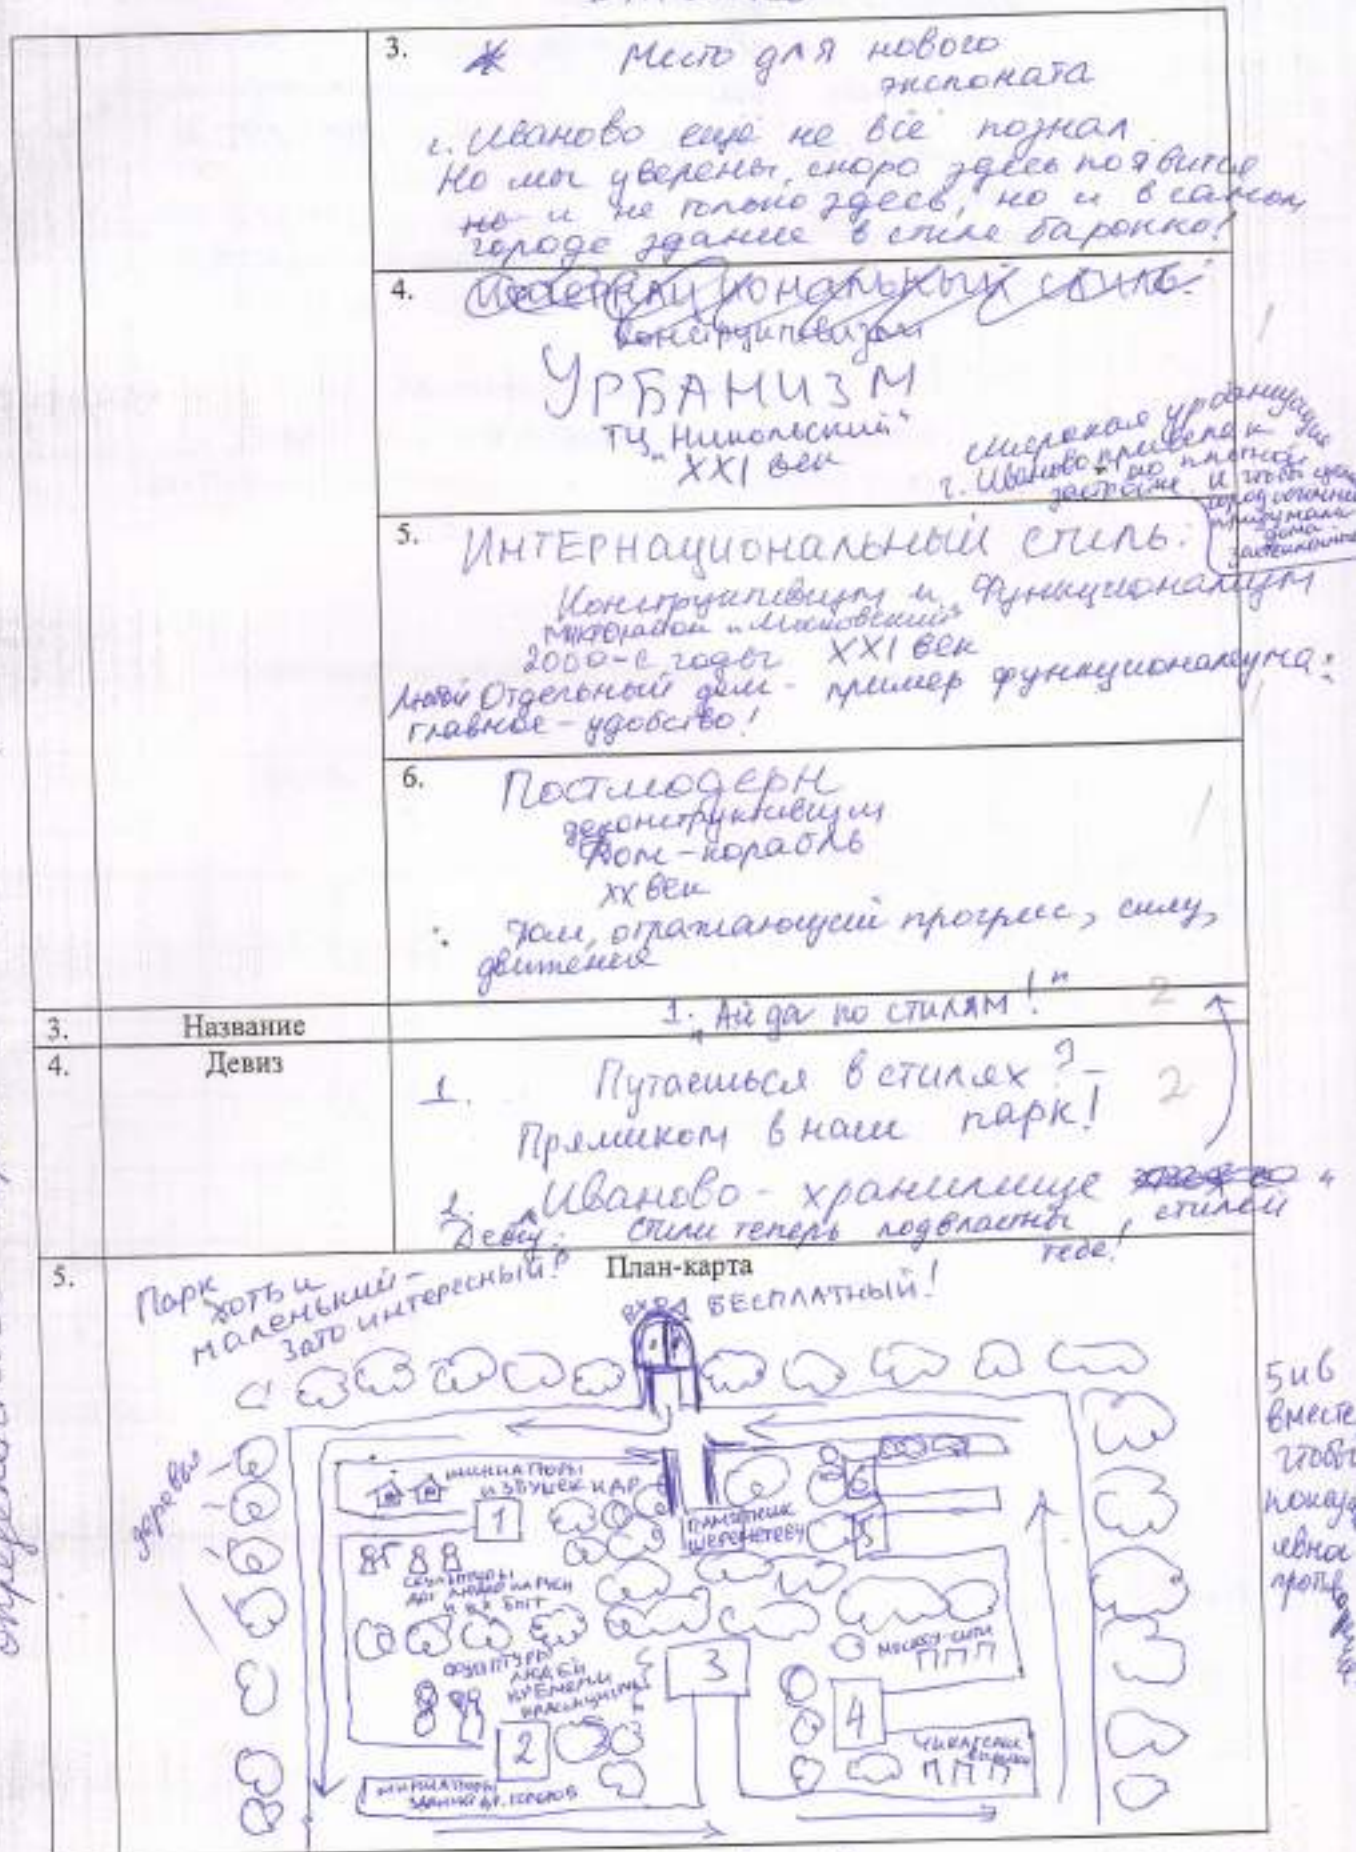 3.
Место для нового
экспоната
г. Иваново ещё не всё познал.
Но мы уверены, скоро здесь появится
но и не только здесь, но и в самом
городе здание в стиле барокко!
4.
Интернациональный стиль:
Конструктивизм
УРБАНИЗМ
ТЦ „Никольский"
XXI век
урбанизация
г. Иваново привела к
плотной
застройке. и чтобы
придумали
дома
5.
Интернациональный стиль:
Конструктивизм и Функционализм
микрорайон „Московский"
2000-е годы XXI век
Любой Отдельный дом - пример функционализма:
главное - удобство!
6.
Постмодерн
деконструктивизм
Дом-корабль
XX век
Дом, отражающий прогресс, силу,
движения
3. Название
1. „Айда по стилям!"
2
4. Девиз
1. Путаешься в стилях? -
Прямиком в наш парк!
2
2. „Иваново - хранилище стилей"
Девиз: Стили теперь подвластны тебе!
5. План-карта
Парк хоть и
маленький -
зато интересный!
ВХОД БЕСПЛАТНЫЙ!
деревья
МИНИАТЮРЫ
ИЗБУШЕК
1
СКУЛЬПТУРЫ
ЛЮДЕЙ НА РУСИ
И ИХ БЫТ
ПАМЯТНИК
ШЕРЕМЕТЕВУ
6
5
СКУЛЬПТУРЫ
ЛЮДЕЙ
ВРЕМЕНИ
КЛАССИЦИЗМА
2
МИНИАТЮРЫ
ЗДАНИЙ ДР. ГОРОДОВ
3
МОСКВА-СИТИ
4
ЧИКАГСКИЕ
5 и 6
вместе
чтобы